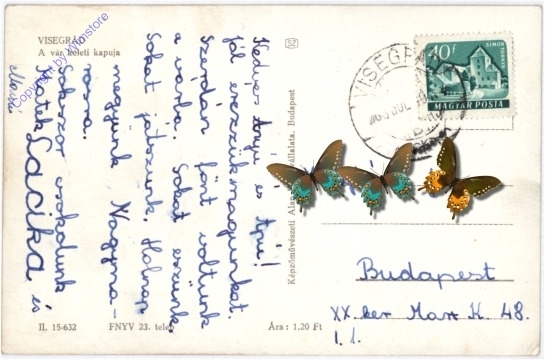 VISEGRÁD
A vár keleti kapuja
Copyright by Winstore
Kedves Anyu és Apu!
jól érezzük magunkat.
Szerdán fönt voltunk
a várba. Sokat eszünk,
Sokat játszunk. Holnap
megyünk Nagyma-
rosra.
Sokszor csókolunk
Lacika és
Képzőművészeti Alap
vállalata, Budapest
40f
SIMON
MAGYAR POSTA
VISEGRÁD
Budapest
XX. ker Marx K. 48.
I. 1.
II. 15-632
FNYV 23. telep
Ára: 1,20 Ft